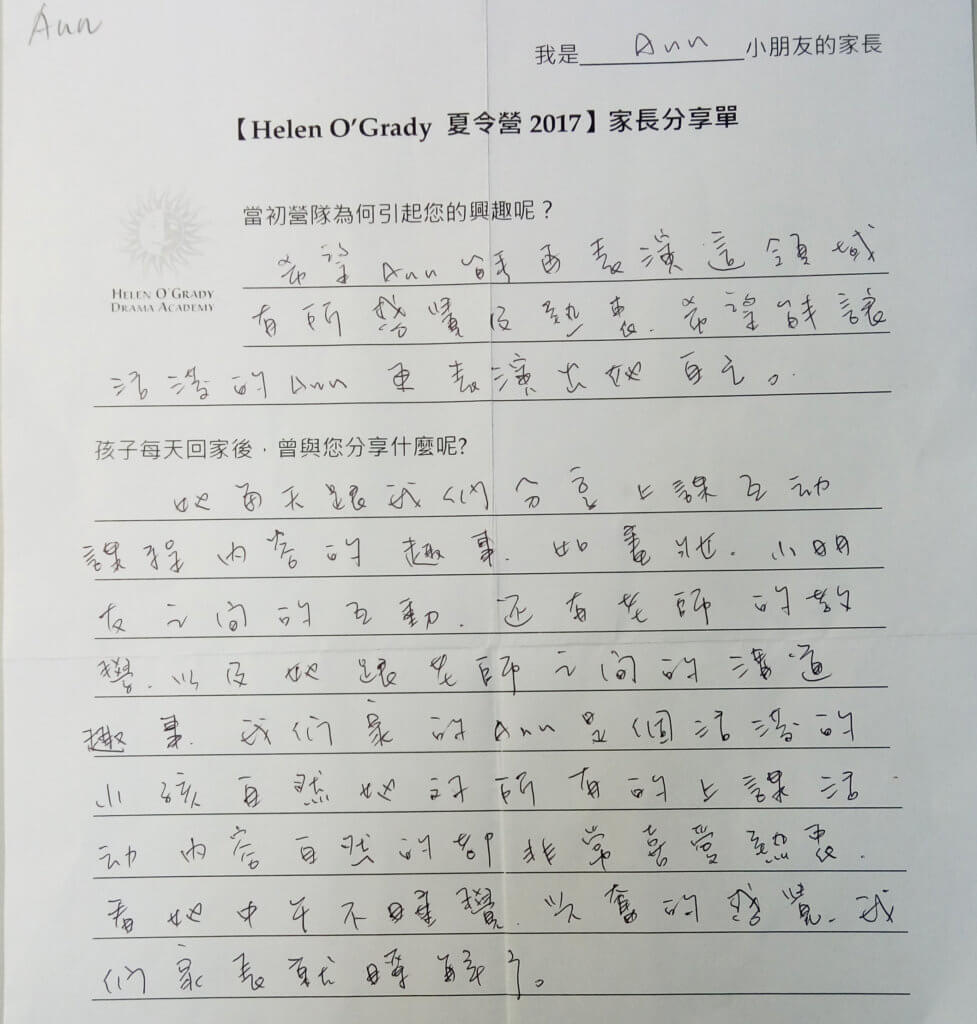 Ann
我是 Ann 小朋友的家長
【Helen O'Grady 夏令營 2017】家長分享單
HELEN O'GRADY
DRAMA ACADEMY
當初營隊為何引起您的興趣呢？
希望 Ann 能再表演這領域
有所發覺及熱衷. 希望能讓
活潑的 Ann 更表演出她自己。
孩子每天回家後，曾與您分享什麼呢?
她每天跟我們分享上課互动
課程內容的趣事. 如畫壯. 小朋
友之間的互動. 还有老師的教
學. 以及她跟老師之間的溝通
趣事. 我們家的Ann是個活潑的
小孩自然她對所有的上課活
动內容自然的都非常喜愛熱衷.
看她中午不睡覺. 興奮的感覺. 我
們家長就瞭解了。